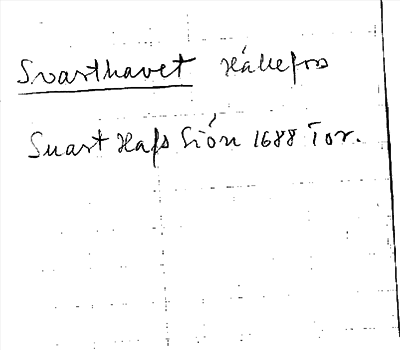 Svarthavet Håkefors
Suart Hafs Sión 1688 Tor.